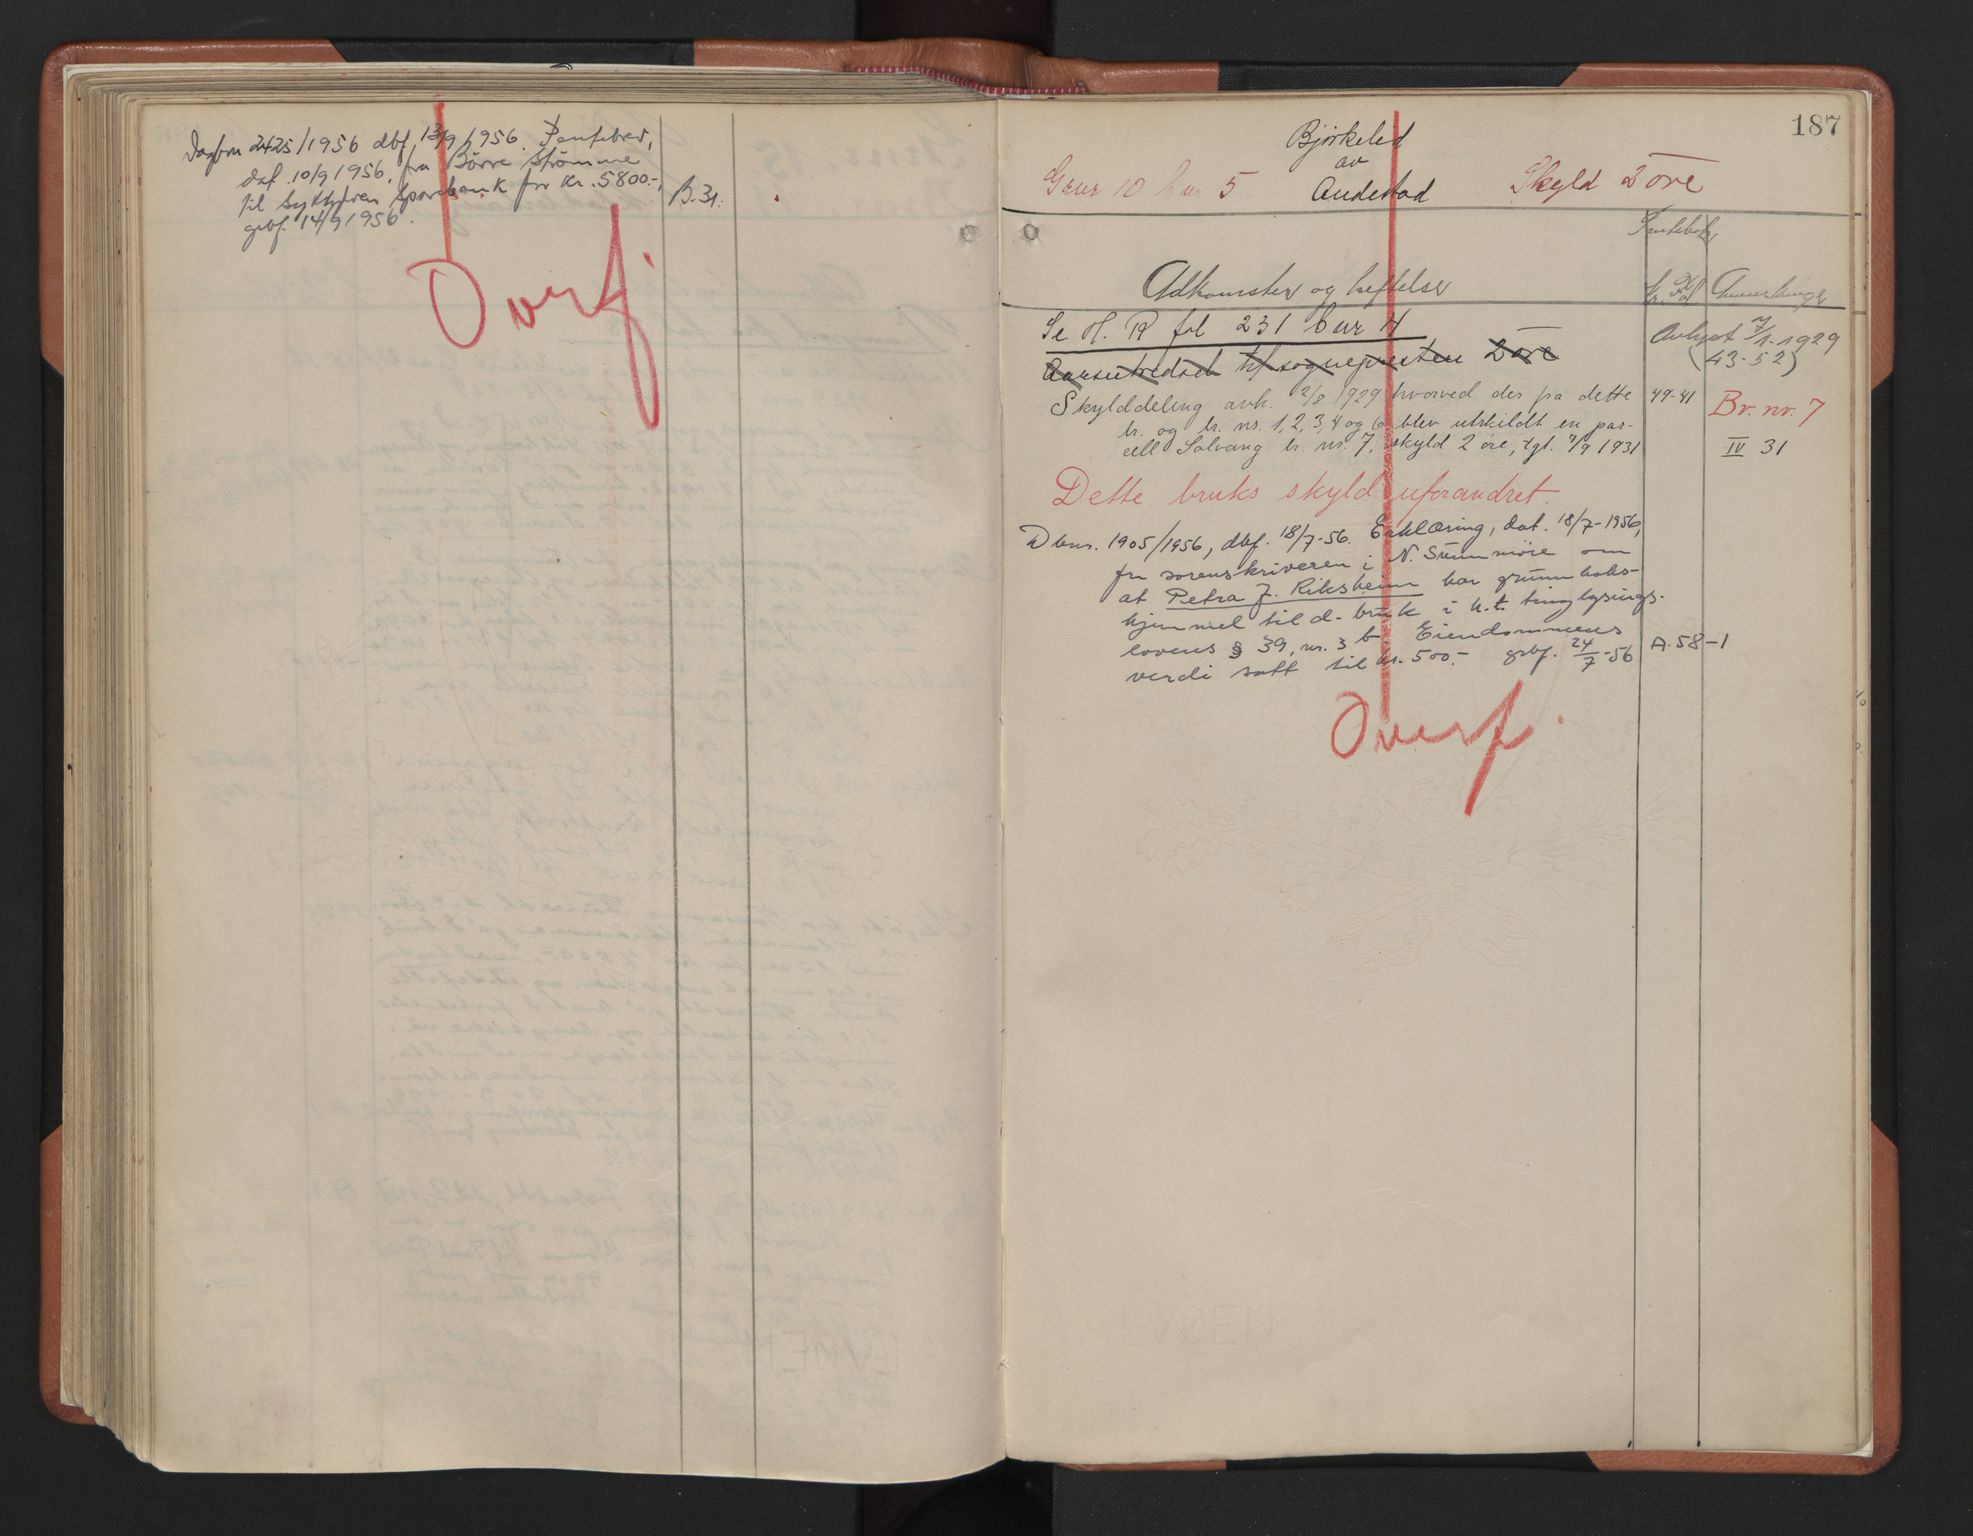 Dagbnr 2425/1956 dbf. 13/9 1956. Pantebrev,
dat. 10/9 1956, fra Børre Strømme
til Sykkylven Sparebank for kr. 5800.-, B. 31.
grbf. 14/9 1956.
Overf.
187
Bjørkelid
av
Gnr 10 bnr 5 Andestad Skyld 2 øre
Pantebok
Adkomster og heftelser Nr. Fol Anmerkninger
Se H. R fol 231 bnr 4
Avlyst 7/1-1929
(43-52)
Aarsutredsel til sognepresten 2 øre
Skylddeling avh. 2/8 1929 hvorved der på dette 49-41 Br. nr. 7
br. og br. nr. 1, 2, 3, 4 og 6 blev utskildt en par-
cell Solvang br. nr. 7, skyld 2 øre, tgl. 7/9 1931 IV 31
Dette bruks skyld uforandret.
Dbnr. 1905/1956, dbf. 18/7-56. Erklæring, dat. 18/7-1956,
fra sorenskriveren i N. Sunnmøre om
at Petra J. Riksheim har grunnboks-
hjemmel til d. bruk i h.t. tinglysings-
lovens § 39, nr. 3 b. Eiendommens
verdi satt til kr. 500.- grbf. 24/7-56 A. 58-1
Overf.